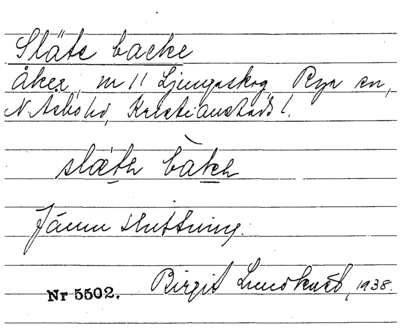 Släte backe
åker, m 11 Ljungaskog, Rya sn,
N. Åsbo hd, Kristianstads l.
slǽtə bàkə
Jämn sluttning.
Nr 5502. Birgit 1938.